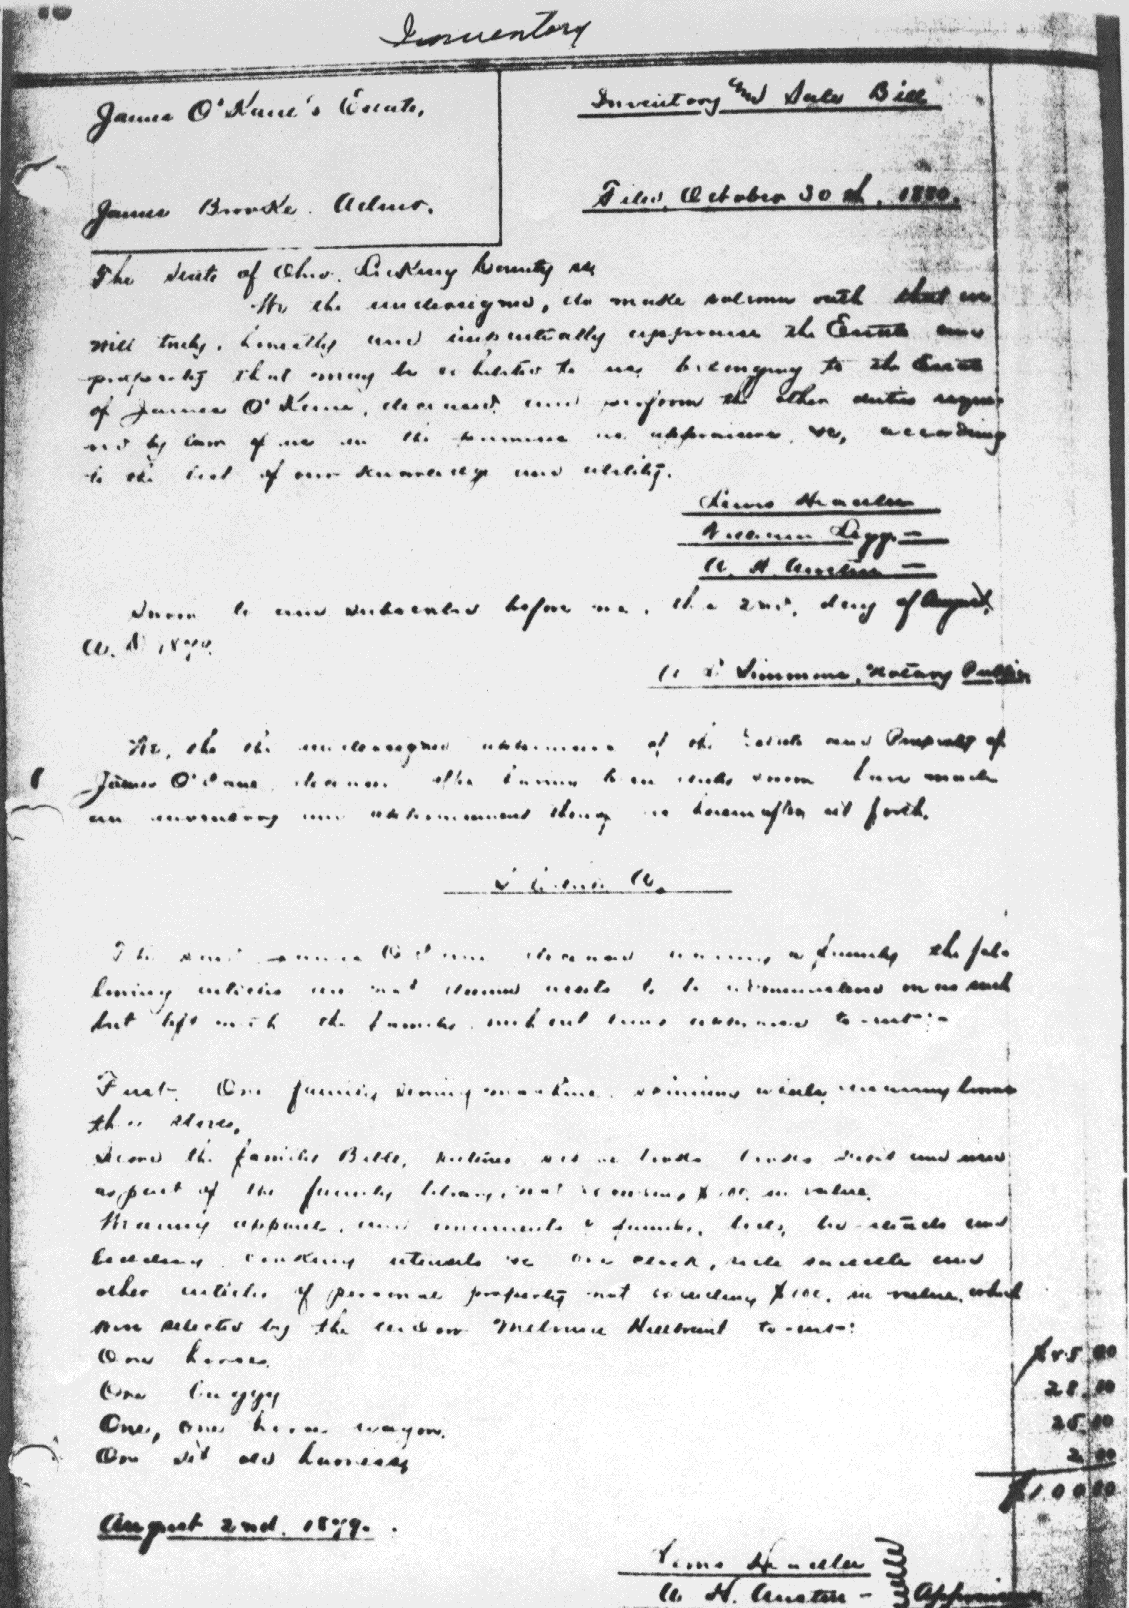 Inventory
James O'Kane's Estate,
Inventory and Sale Bill
James Brooke. Admr.
Filed, October 30th, 1880.
The State of Ohio. Licking County ss
We the undersigned, do make solemn oath that we
will truly, honestly and impartially appraise the Estate and
property that may be exhibited to us, belonging to the Estate
of James O'Kane, deceased, and perform the other duties requi-
red by law of us in the premises as appraisers, &c, according
to the best of our knowledge and ability.
Lewis
William Legg
A. H. Austin
Sworn to and subscribed before me, this 2nd, day of August,
A. D. 1879.
Simmons, Notary Public
We, the the undersigned appraisers of the Estate and Property of
James O'Kane, deceased after having been duly sworn have made
an inventory and appraisement thereof as hereinafter set forth.
Schedule A.
The said James O'Kane deceased leaving a family the fol-
lowing articles are not deemed assets to be administered on as such
but left with the family, without being appraised to-wit:-
First. One family sewing machine, spinning wheels, weaving looms
the stoves,
Second the families Bible, pictures and books used
as part of the family library, not exceeding $100. in value.
Wearing apparel, and ornaments of family, beds, bedsteads and
bedding cooking utensils &c one clock, side saddle and
other articles of personal property not exceeding $100. in value, which
were selected by the widow to-wit:
One horse. $45.00
One buggy 28.00
One, one horse wagon. 25.00
One set old harness, 2.00
$100.00
August 2nd. 1879.
Lewis
A. H. Austin